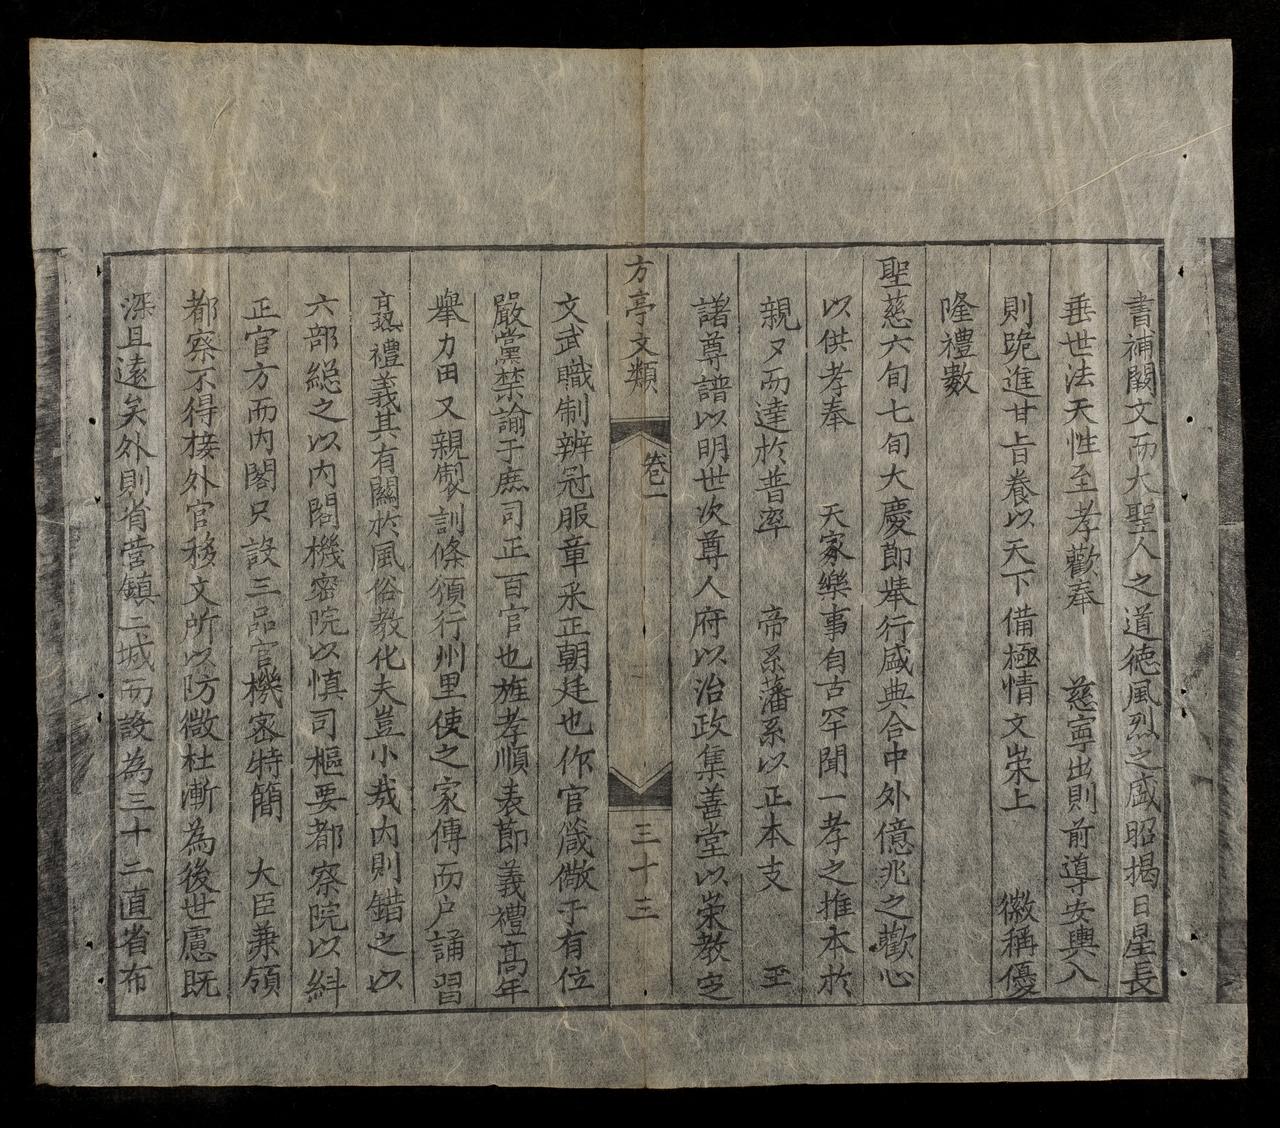 書補闕文而大聖人之道德風烈之盛昭揭日星長
垂世法天性至孝歡奉 慈寧出則前導安輿入
則跪進甘旨養以天下備極情文崇上 徽稱優
隆禮數
聖慈六旬七旬大慶節擧行盛典合中外億兆之歡心
以供孝奉 天家樂事自古罕聞一孝之推本於
親〻而達於普率 帝系藩系以正本支 至
諸尊譜以明世次尊人府以治政集善堂以崇教定
方亭文類 卷一 三十三
文武職制辨冠服章采正朝廷也作官箴儆于有位
嚴黨禁諭于庶司正百官也旌孝順表節義禮高年
擧力田又親製訓條頒行州里使之家傳而户誦習
禮義其有關於風俗教化夫豈小哉内則錯之以
六部緫之以内閣機密院以慎司樞要都察院以糾
正官方而内閣只設三品官機密特簡 大臣兼領
都察不得接外官移文所以防微杜漸為後世慮既
深且遠矣外則省營鎮二城而設為三十二直省布